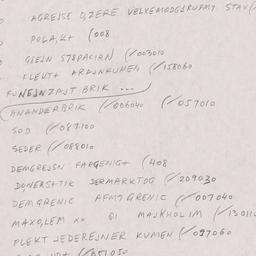 AGREJSS OZERE VELXEMODGJRUFMT STAV(
POLA,K+ (008
GLEJN STJAPACIAN (/003010
FLEKT+ ARAJNKUMEN (/158060
FUNEJNZPJT BRIK ...
ANANDERBRIK (/006040 (/057010
SOD (/087100
SEDER (/088010
DEMGREJSN FARGENIG+ (408
DONERSHTIK DERMARKTOG (/209030
DEMGRENIC AFMT GRENIC (/007040
MAXOLEM xx 01 MAJKHOLIM (/13011
FLEKT JEDEREJNER KUMEN (/027060
(/051050